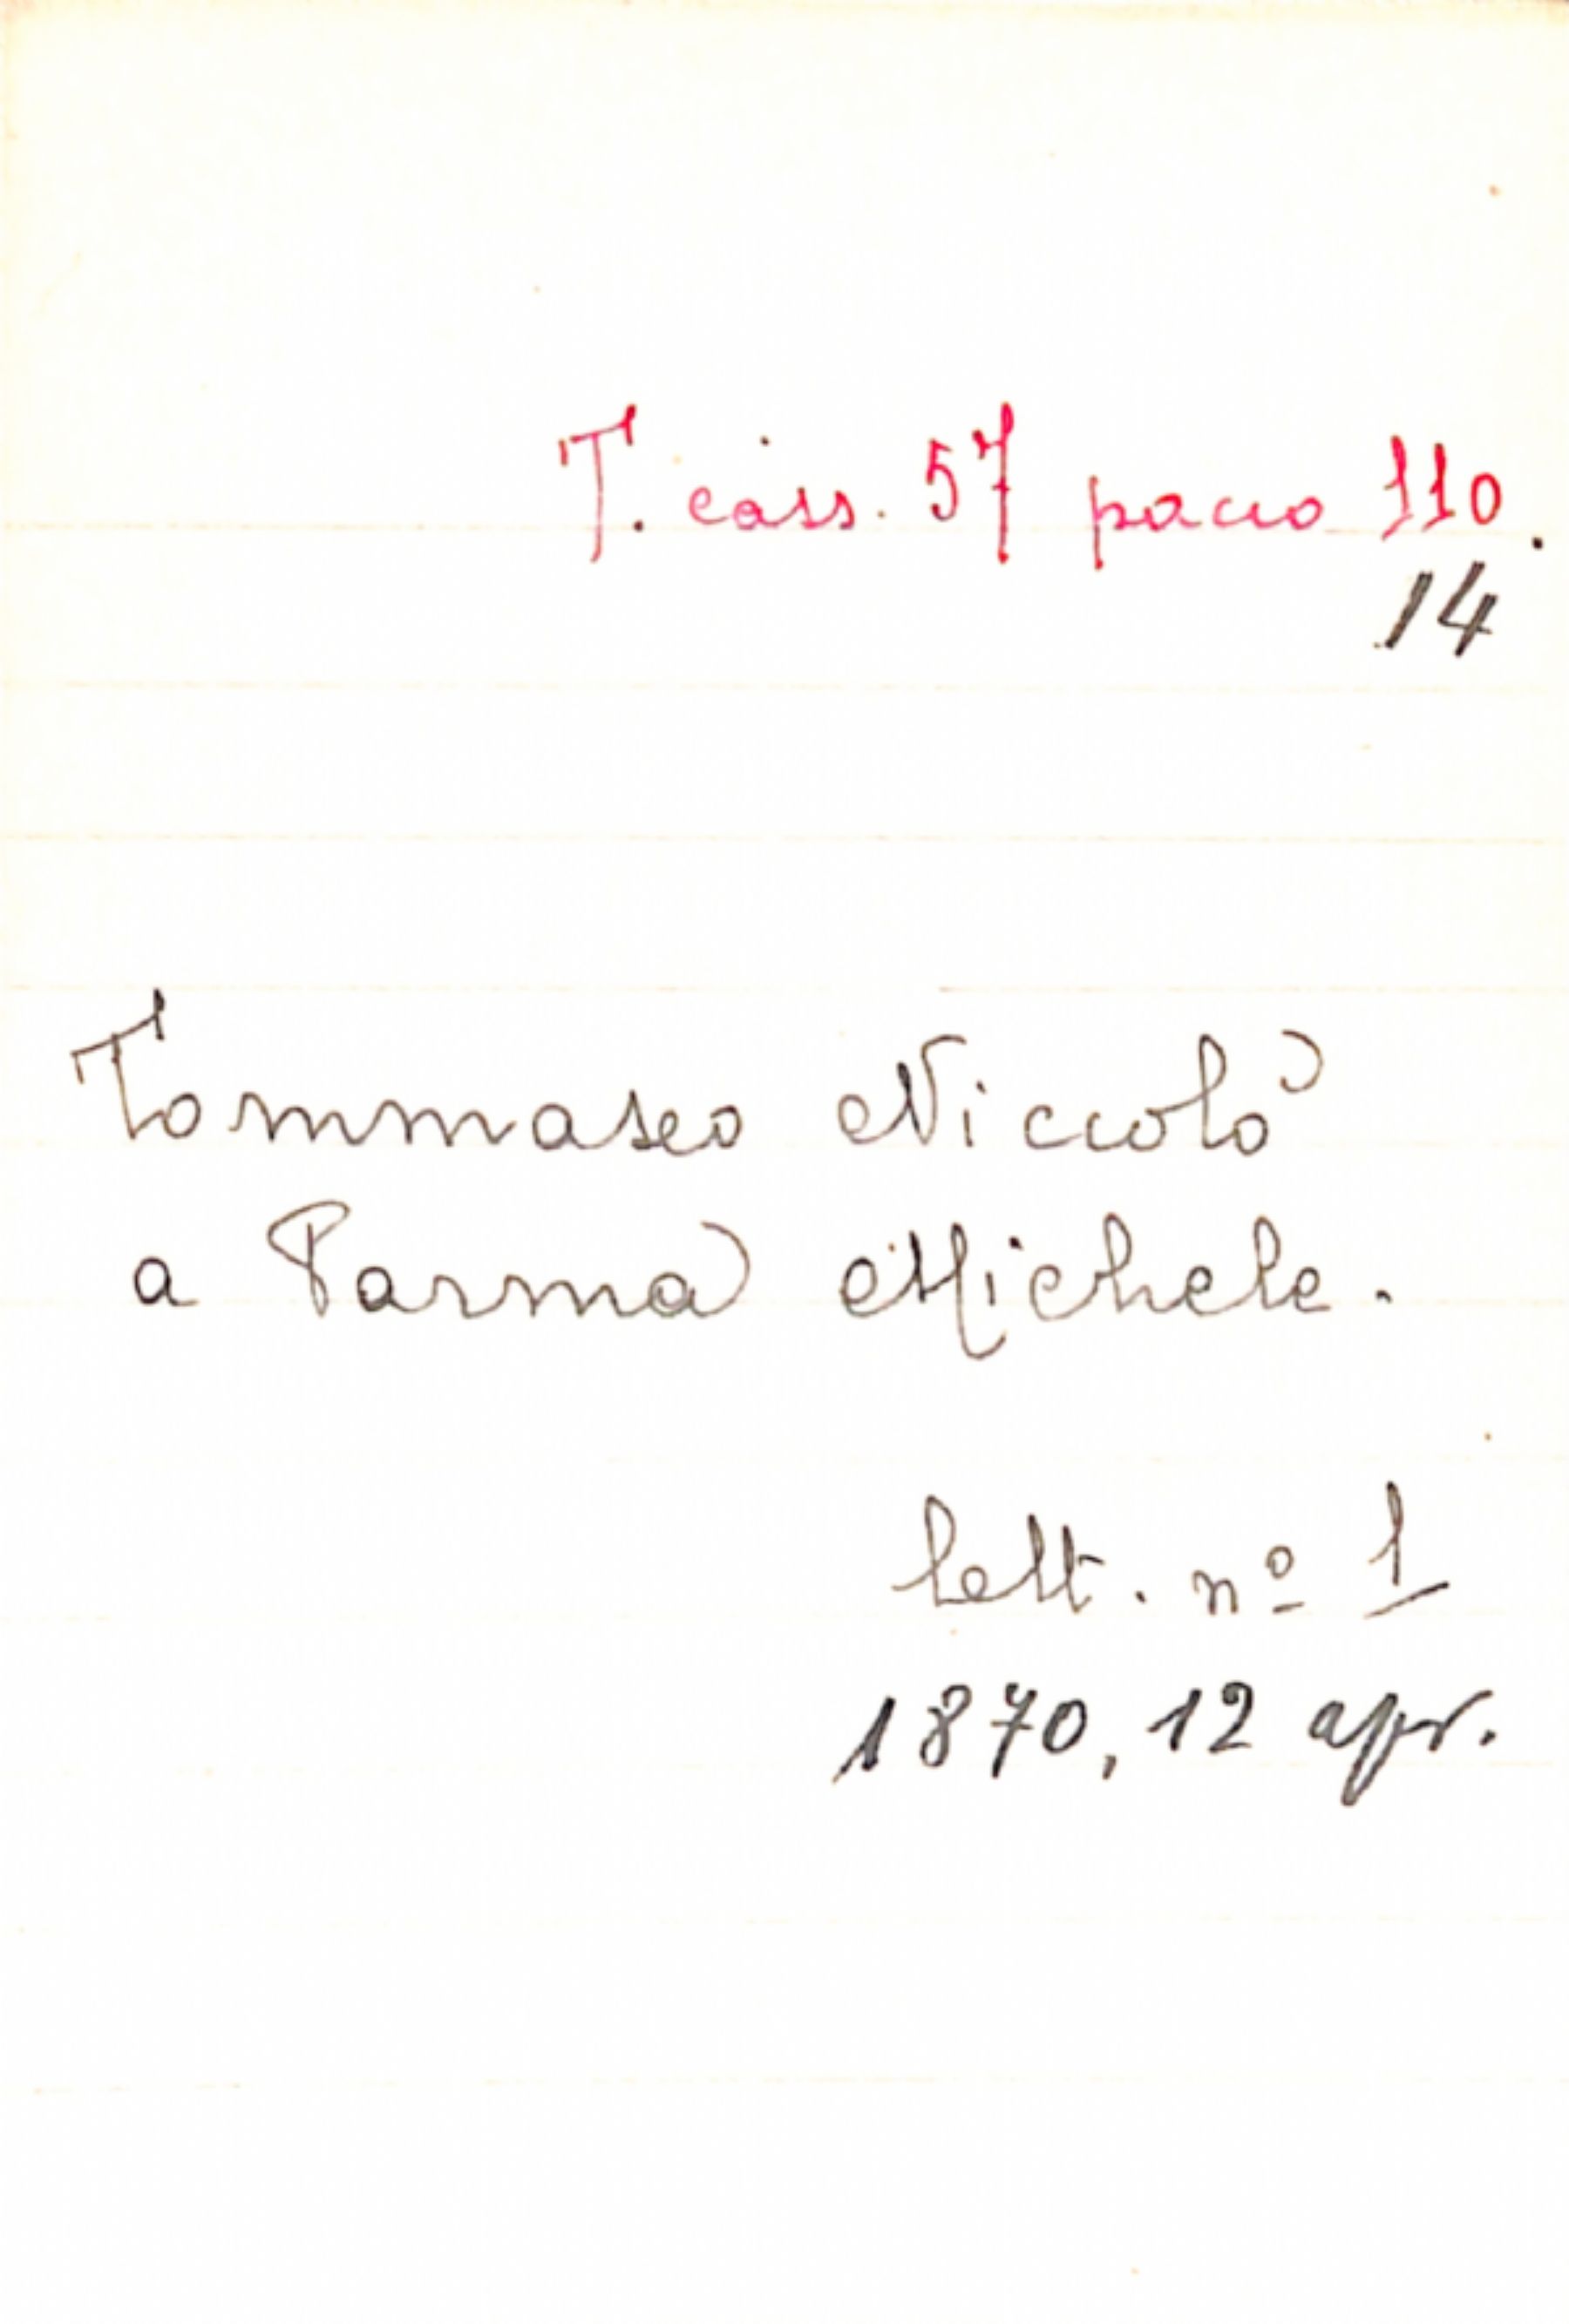 T. cass. 57 pacco 110.
14
Tommaseo Niccolò
a Parma Michele.
lett. nº 1
1870, 12 apr.